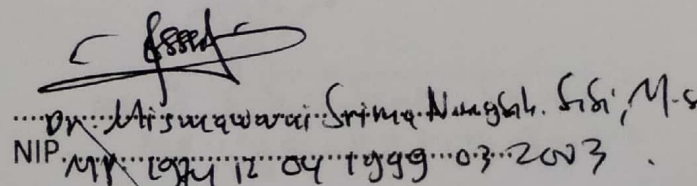 Dr. Misnawarni Srima Ningsih. S.Si, M.S
NIP. 1974 12 04 1999 03 2003.